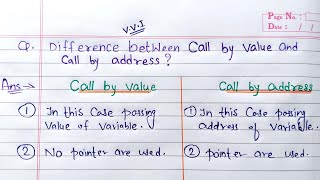 V.V.I
Page No.:
Date: / /
Q. Difference between Call by value and
Call by address?
Ans → Call by value
① In this Case passing
Value of Variable.
② No pointer are used.
Call by address
① In this Case passing
Address of Variable.
② pointer are used.